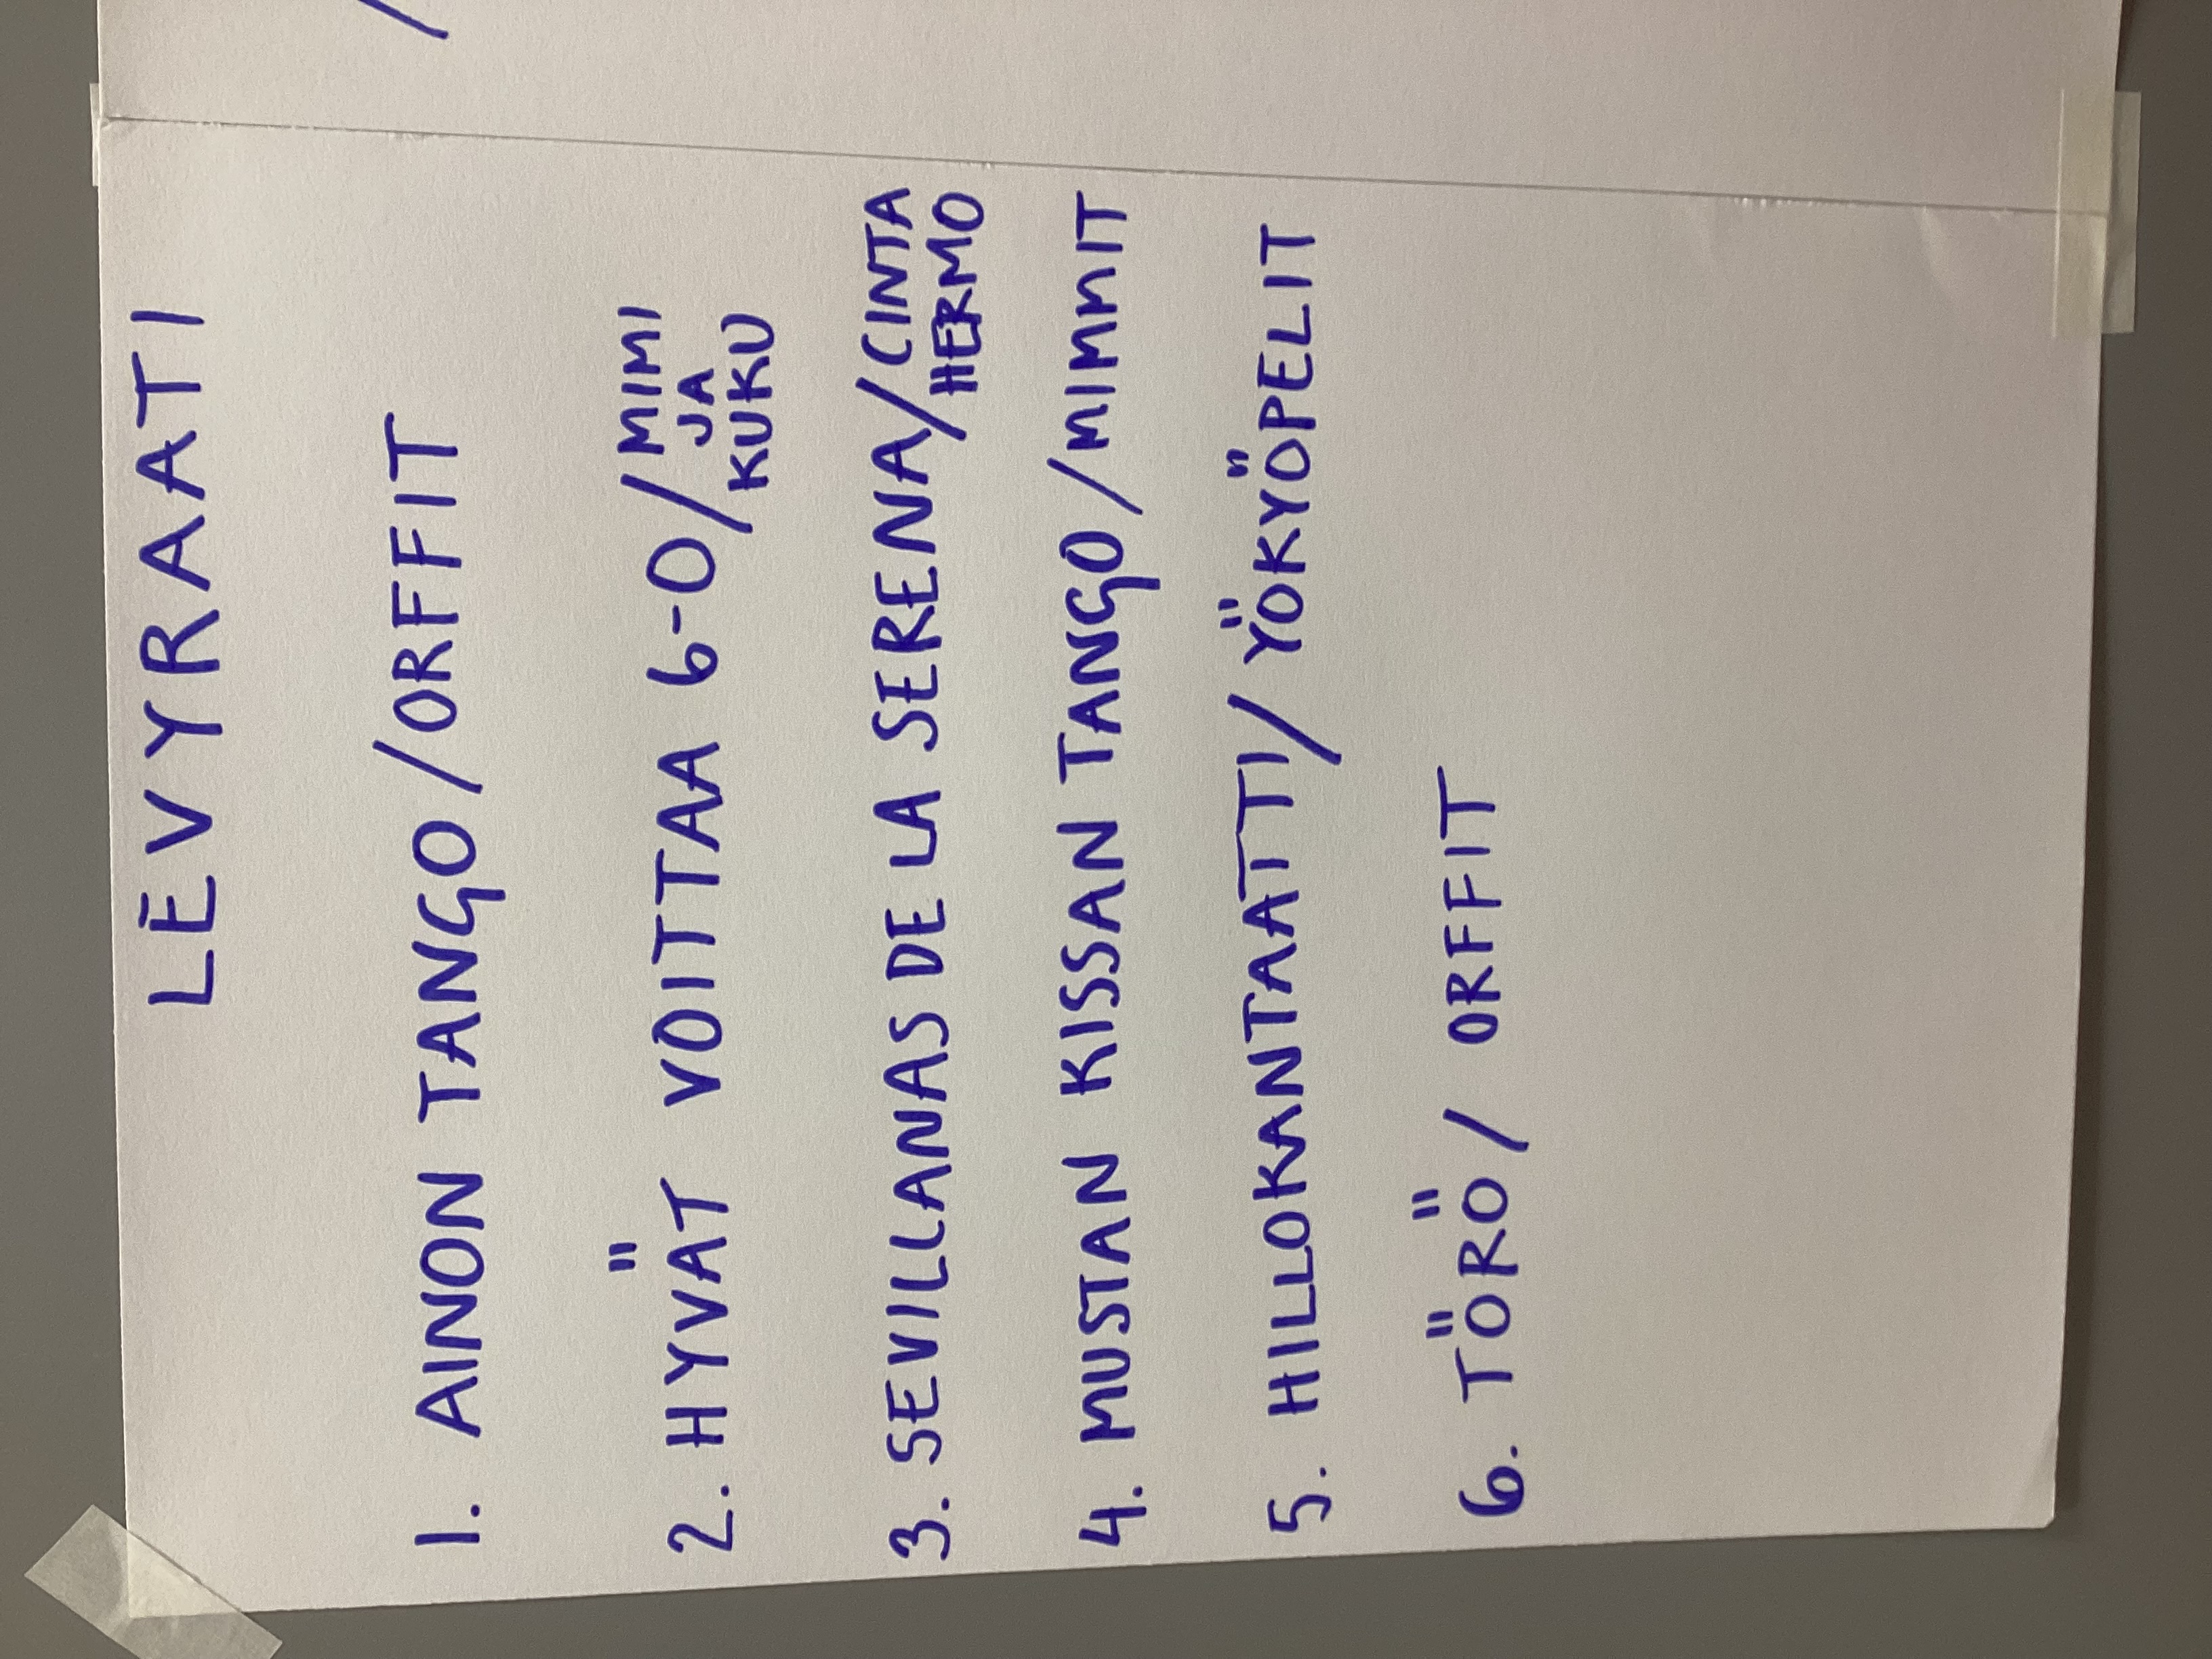 LEVYRAATI
1. AINON TANGO / ORFFIT
2. HYVÄT VOITTAA 6-0 / MIMI
JA
KUKU
3. SEVILLANAS DE LA SERENA / CINTA
HERMO
4. MUSTAN KISSAN TANGO / MIMMIT
5. HILLOKANTAATTI / YÖKYÖPELIT
6. TÖRÖ / ORFFIT